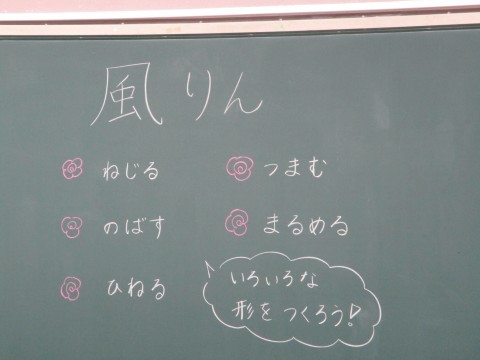 風りん
ねじる
のばす
ひねる
つまむ
まるめる
いろいろな
形をつくろう!